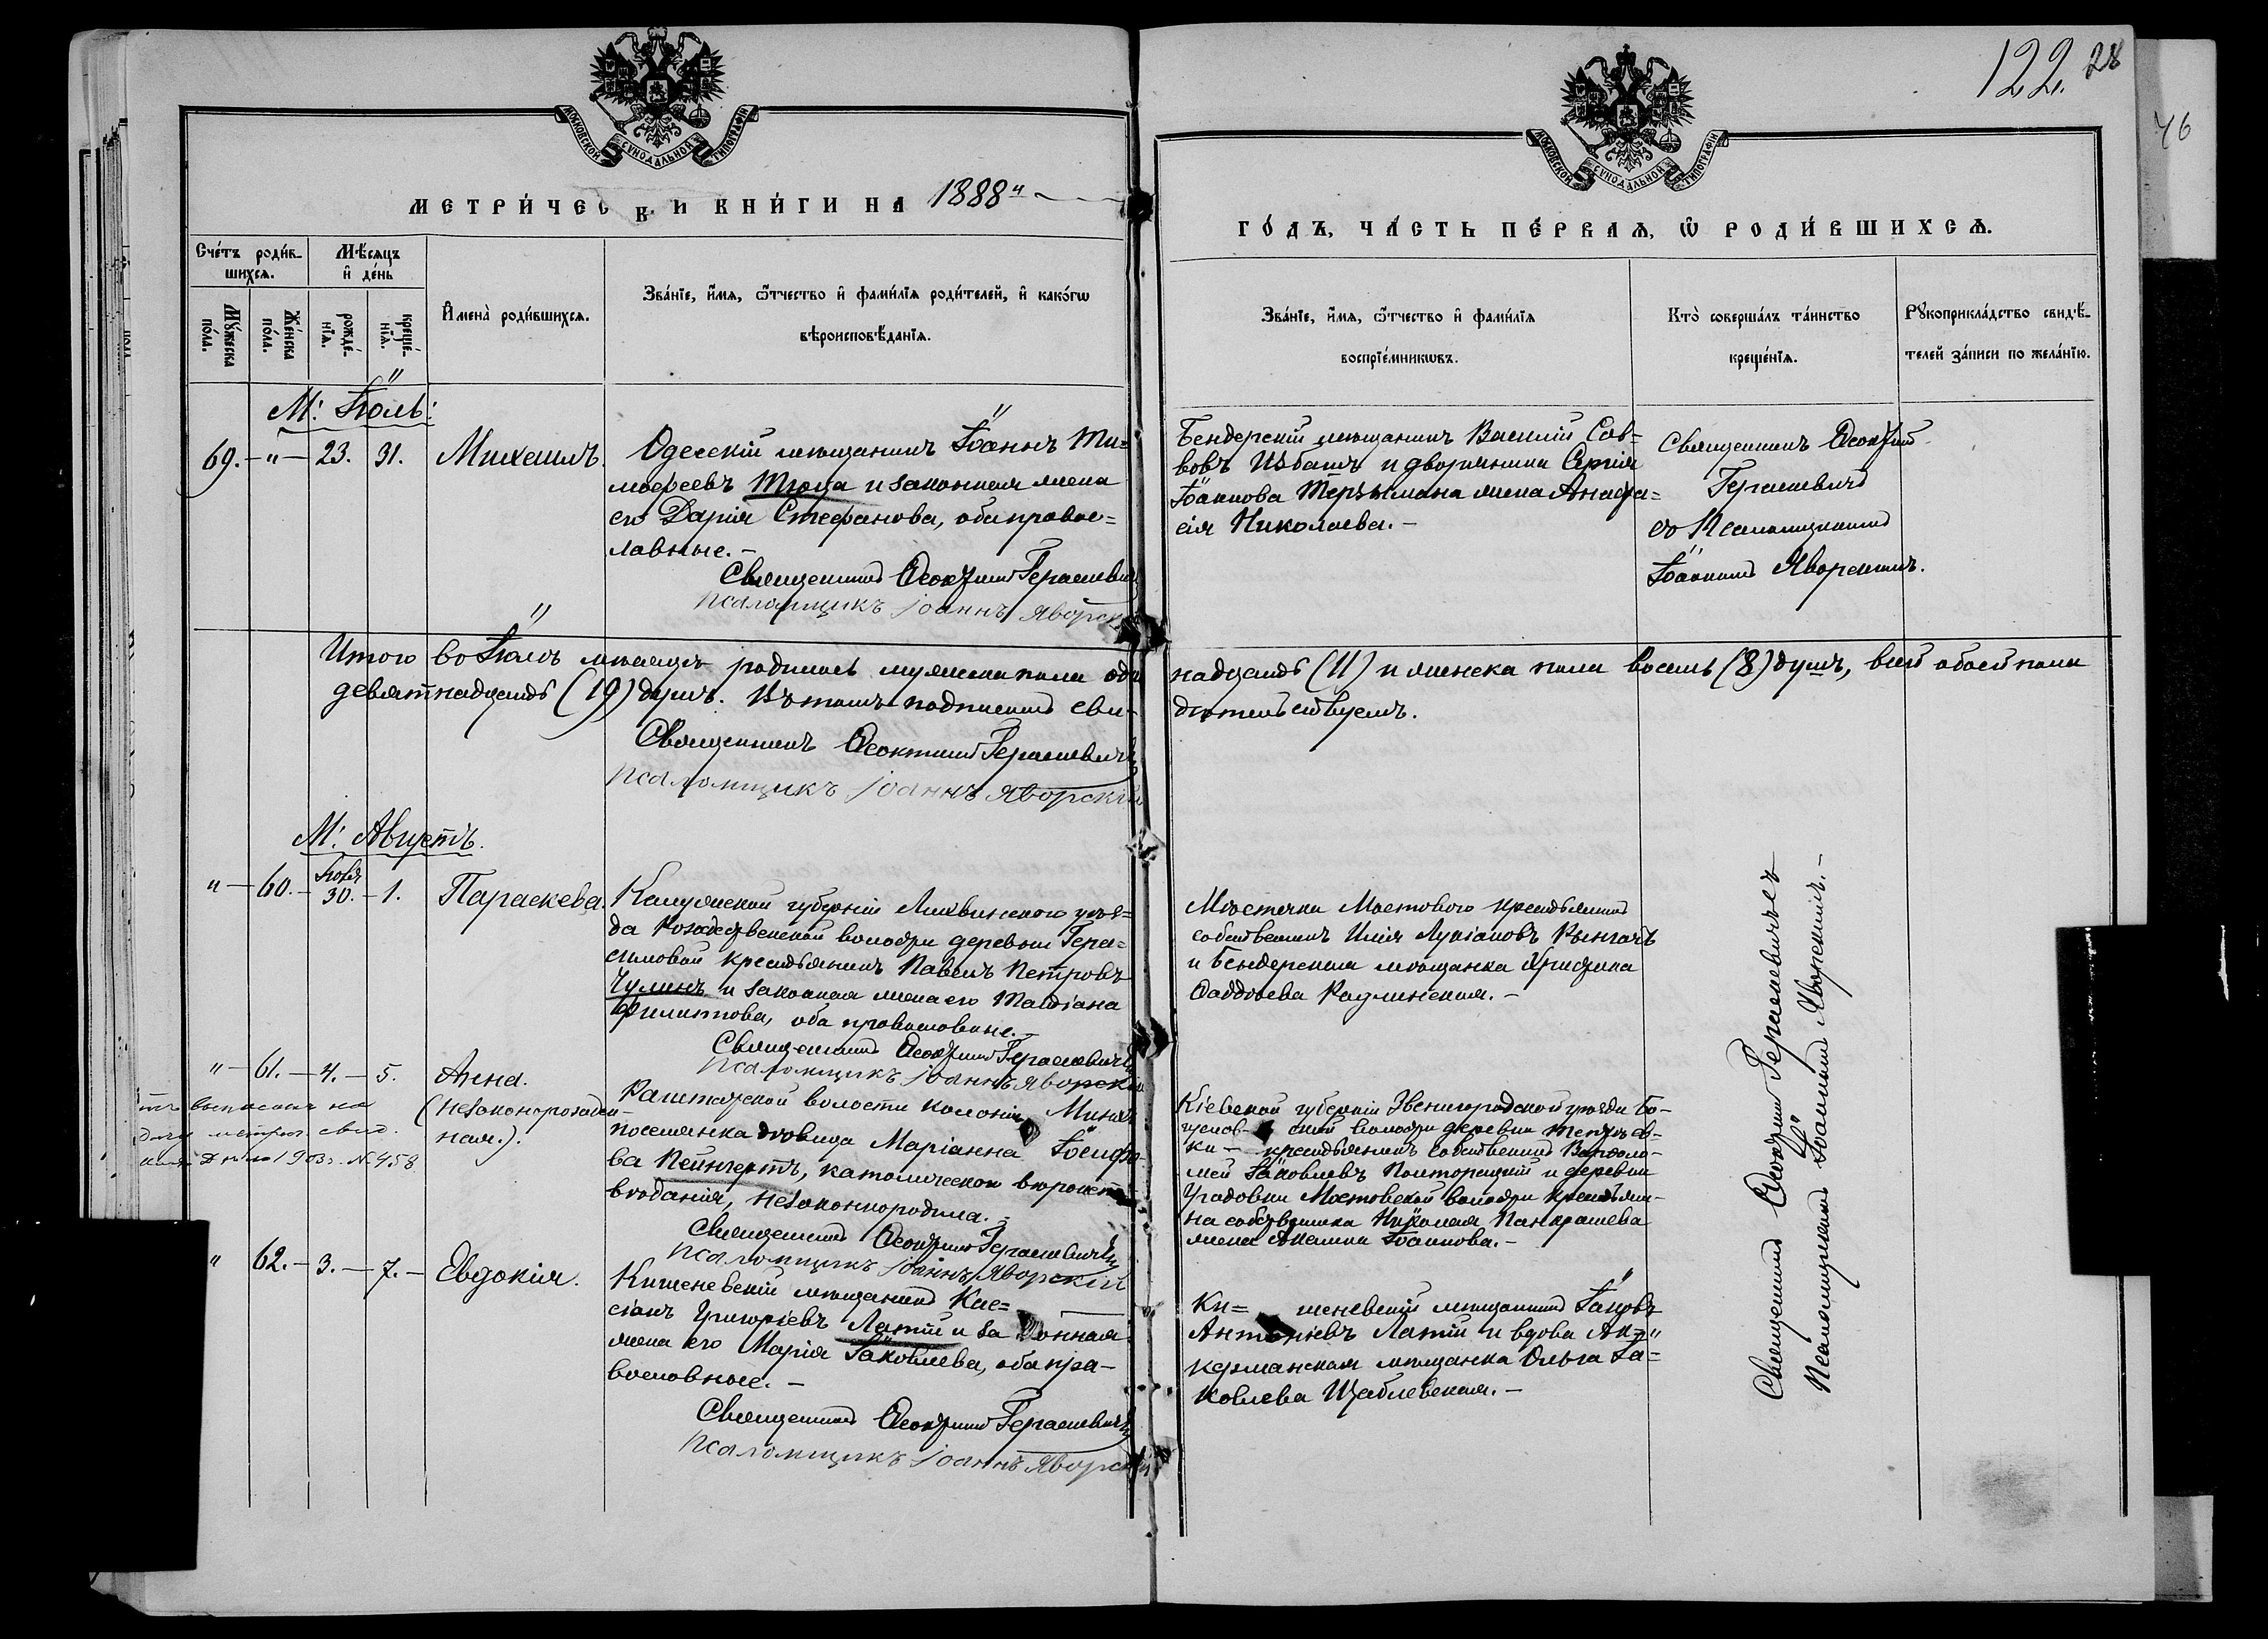 122. 28
46
МОСКОВСКОЙ СѴНОДАЛЬНОЙ ТИПОГРАФІИ
МОСКОВСКОЙ СѴНОДАЛЬНОЙ ТИПОГРАФІИ
МЕТРИ́ЧЕСКИ КНИ́ГИ НА 1888й
ГО́ДЪ, ЧА́СТЬ ПЕ́РВАѦ, Ѡ РОДИ́ВШИХСѦ.
Сче́тъ роди́в-
шихсѧ.
Мѣ́сѧцъ
и҆ де́нь
Мꙋ́жеска
по́ла.
Же́нска
по́ла.
рожде́-
нїѧ.
креще́-
нїѧ.
И҆мена̀ роди́вшихсѧ.
Зва́нїе, и҆́мѧ, ѻ҆́тчество и҆ фами́лїѧ роди́телей, и҆ како́гѡ
вѣроисповѣ́данїѧ.
Зва́нїе, и҆́мѧ, ѻ҆́тчество и҆ фами́лїѧ
воспрїе́мникѡвъ.
Кто̀ соверша́лъ та́инство
креще́нїѧ.
Рꙋкоприкла́дство свидѣ́-
телей за́писи по жела́нїю.
М: Іюль:
69. — " — 23. 31. Михаилъ.
Одесскій мѣщанинъ Іоаннъ Ти=
моѳеевъ Тюца и законная жена
его Дарія Стефанова, оба право=
славные. —
Священникъ Ѳеоктистъ Герасевичъ
Псаломщикъ Іоаннъ Яворскій
Бендерскій мѣщанинъ Василій Сав=
вовъ Избашъ и дворянина Сергія
Іоаннова Терзимана жена Анаста=
сія Николаева. —
Священникъ Ѳеоктистъ
Герасевичъ
съ Псаломщикомъ
Іоанномъ Яворскимъ.
Итого во Іюлѣ мѣсяцѣ родилось мужеска пола оди
надцать (11) и женска пола восемь (8) душъ, всей обоей пола
девятнадцать (19) душъ. Въ томъ подписомъ сви-
дѣтельствуемъ.
Священникъ Ѳеоктистъ Герасевичъ
Псаломщикъ Іоаннъ Яворскій
М: Августъ.
" — 60. — Іюля 30. — 1. Параскева.
Калужской губерніи Лихвинского уѣз=
да Рождественской волости деревни Гера=
симовой крестьянинъ Павелъ Петровъ
Чулинъ и законная жена его Татіана
Филиппова, оба православные. —
Священникъ Ѳеоктистъ Герасевичъ
Псаломщикъ Іоаннъ Яворскій
Мѣстечка Мостового крестьянинъ
собственникъ Илія Лукіановъ
и Бендерская мѣщанка Христина
Ѳаддѣева Радлинская. —
" — 61. — 4. — 5. Анна.
(незаконорожден-
ная.).
выписанъ на
метрич. свид.
1903 г. № 458
Раштатской волости колоніи
поселянка дѣвица Маріанна Іосифо-
ва Пейнгертъ, католическаго вѣроиспо-
вѣданія, незаконнородила. —
Священникъ Ѳеоктистъ Герасевичъ
Псаломщикъ Іоаннъ Яворскій
Кіевской губерніи Звенигородскаго уѣзда Бо-
гуслов- ской волости деревни
ки — крестьянинъ собственникъ Варѳоло-
мей Іаковлевъ Полторацкій и деревни
Градовки Мостовской волости крестьяни-
на собственника Николая Панкратьева
жена Акилина Іоаннова. —
" 62. — 3. — 7. — Евдокія.
Кишеневскій мѣщанинъ Кас=
сіанъ Григоріевъ Латій и законная
жена его Марія Іаковлева, оба пра—
вославные. —
Священникъ Ѳеоктистъ Герасевичъ
Псаломщикъ Іоаннъ Яворскій
Ки= шеневскій мѣщанинъ Іаковъ
Антоніевъ Латій и вдова Ак=
керманская мѣщанка Ольга Іа=
ковлева Щаблевская. —
Священникъ Ѳеоктистъ Герасевичъ съ
Псаломщикомъ Іоанномъ Яворскимъ. —